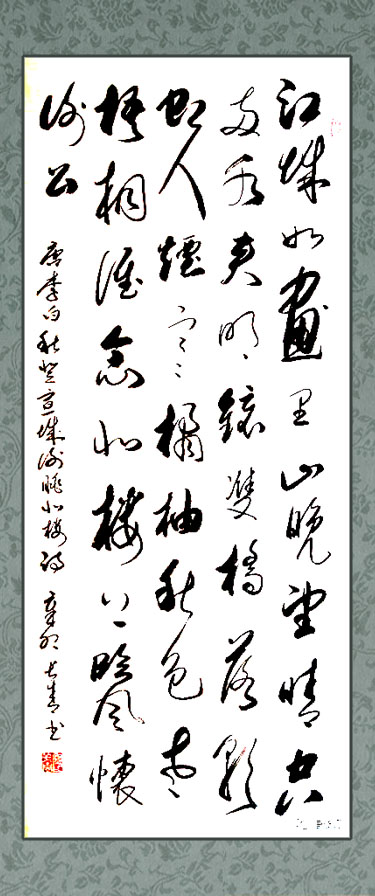 江城如畫里山晚望晴空
兩水夾明鏡雙橋落彩
虹人煙寒橘柚秋色老
梧桐誰念北樓上臨風懷
謝公
唐李白秋登宣城謝眺北樓詩 辛卯 长青书